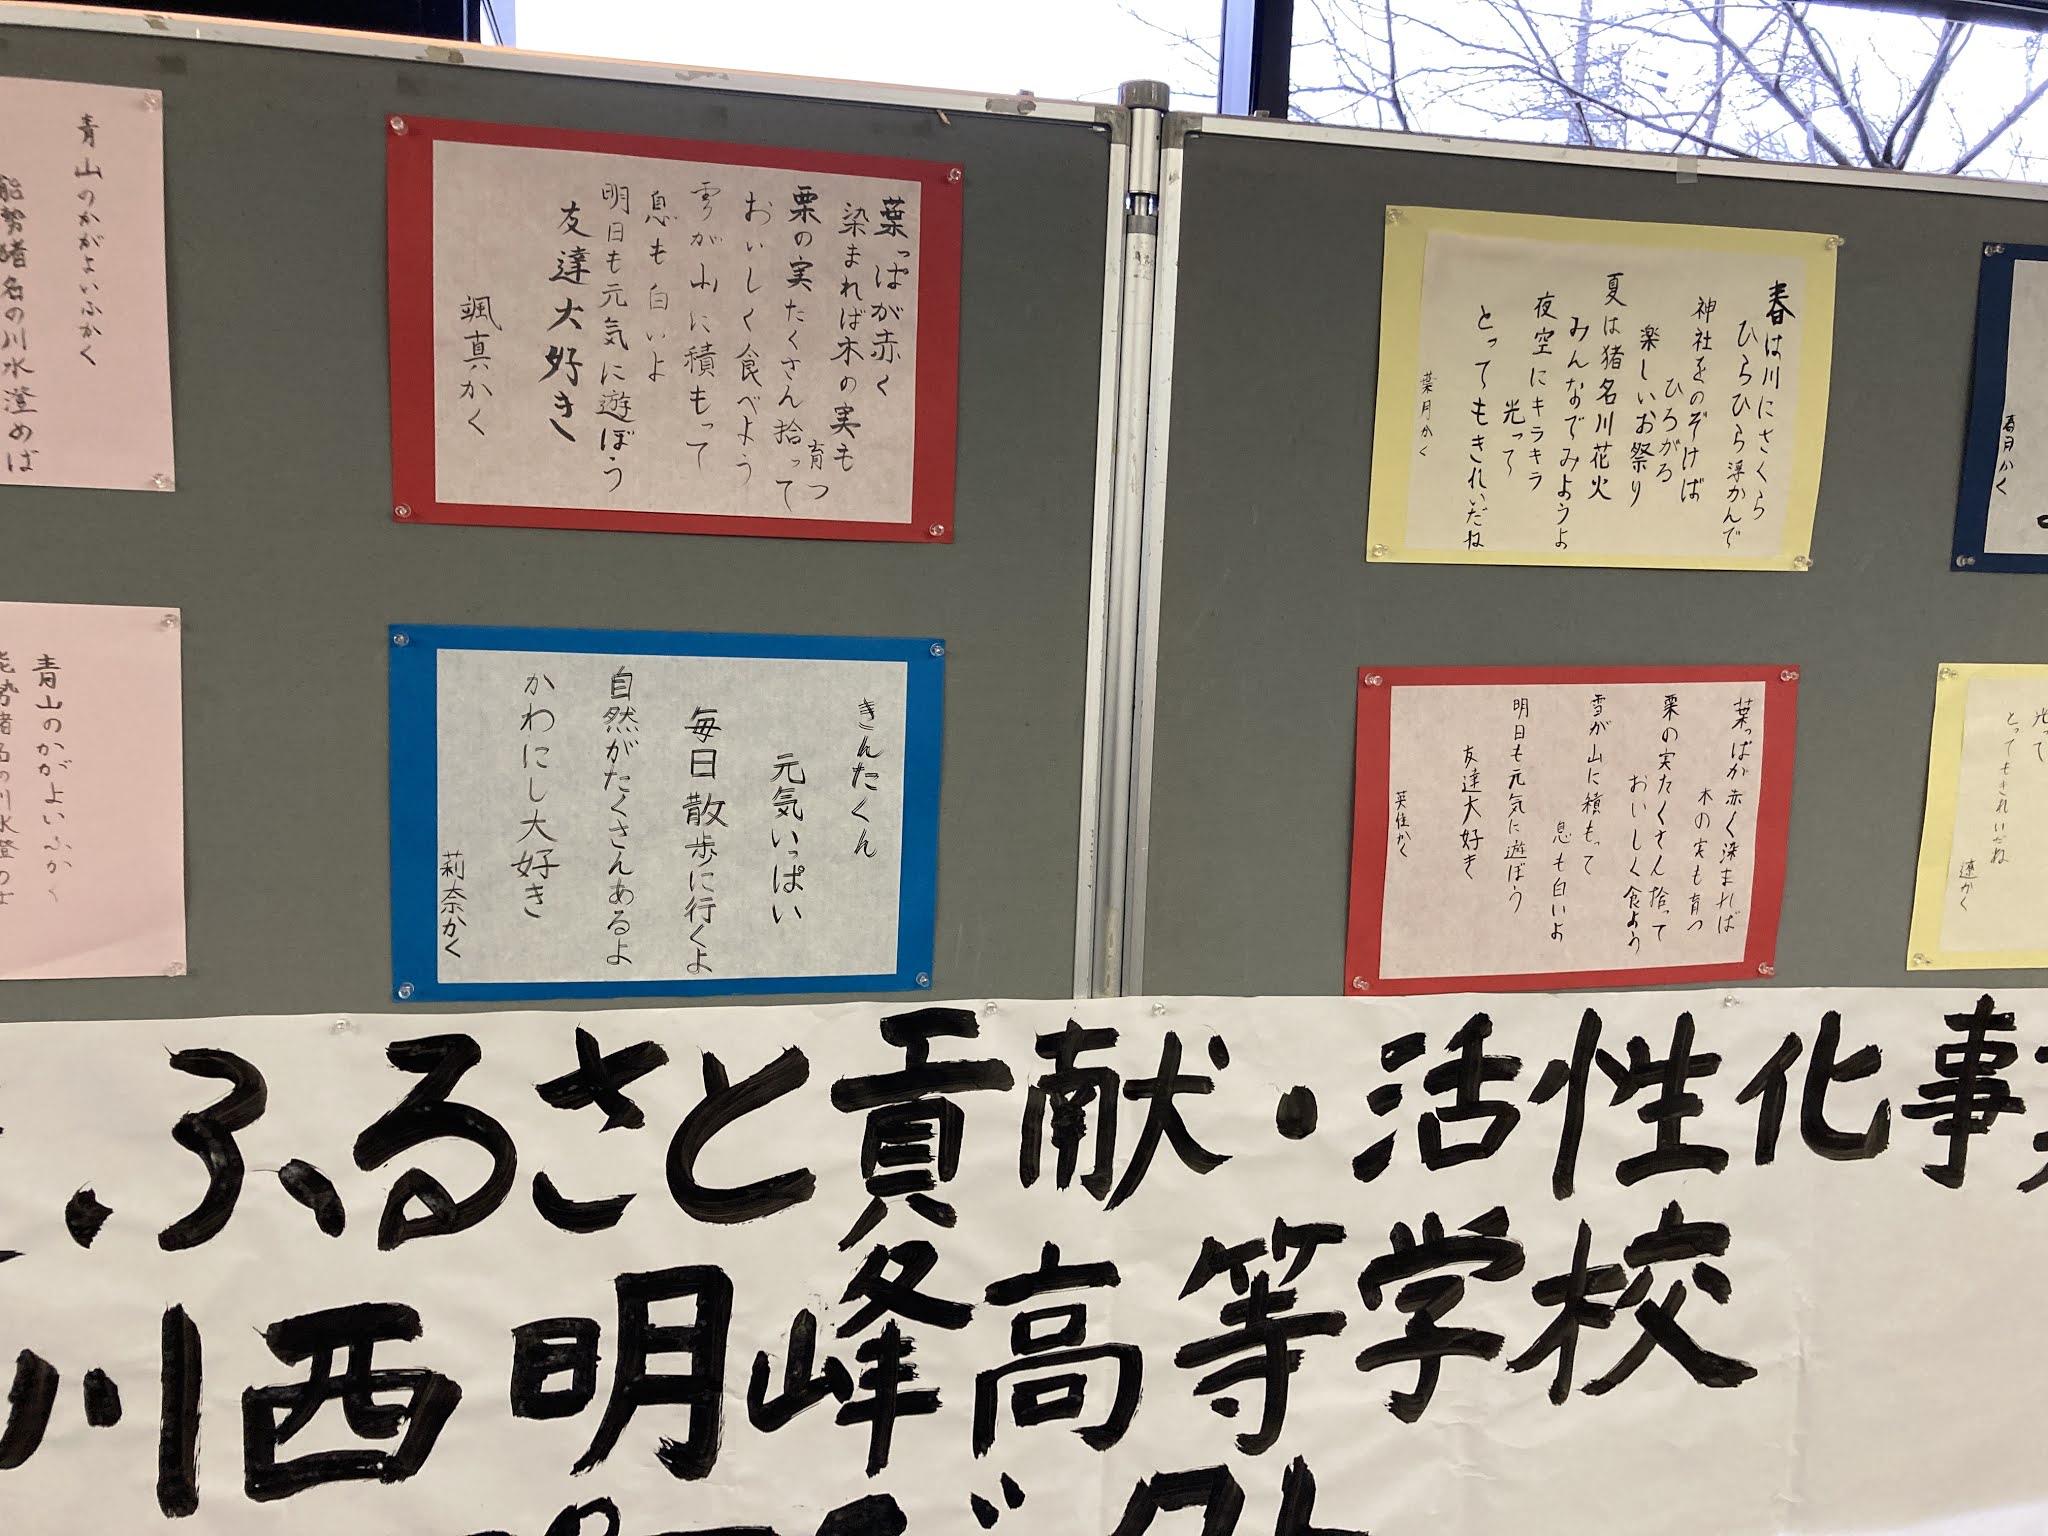 青山のかがよいふかく
能勢猪名の川水澄めば
葉っぱが赤く
染まれば木の実も
育つ
栗の実たくさん拾って
おいしく食べよう
雪が山に積もって
息も白いよ
明日も元気に遊ぼう
友達大好き
颯真かく
春は川にさくら
ひらひら浮かんで
神社をのぞけば
ひろがる
楽しいお祭り
夏は猪名川花火
みんなでみようよ
夜空にキラキラ
光って
とってもきれいだね
葉月かく
春月かく
青山のかがよいふかく
きんたくん
元気いっぱい
毎日散歩に行くよ
自然がたくさんあるよ
かわにし大好き
莉奈かく
葉っぱが赤く染まれば
木の実も育つ
栗の実たくさん拾って
おいしく食よう
雪が山に積もって
息も白いよ
明日も元気に遊ぼう
友達大好き
英佳かく
光って
とってもきれいだね
蓮かく
ふるさと貢献・活性化事
川西明峰高等学校